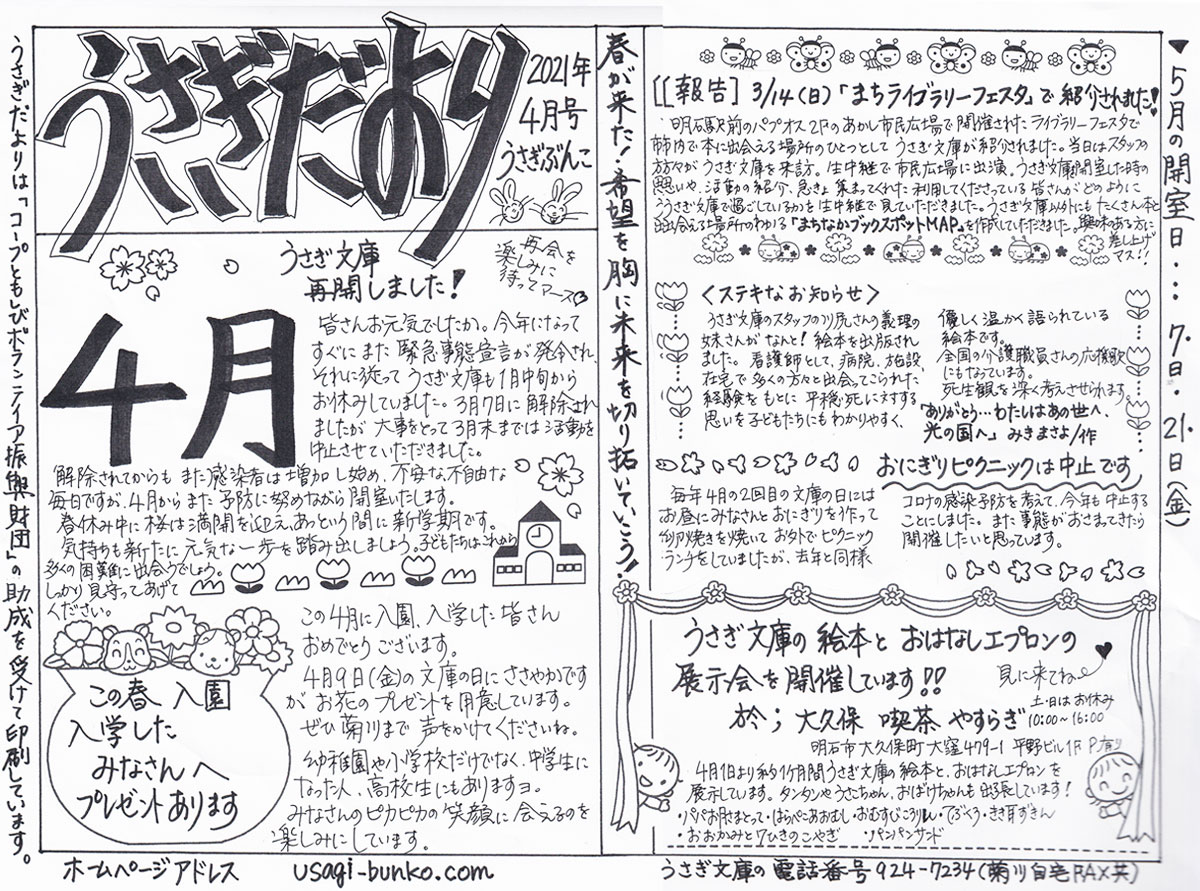 うさぎだより
2021年
4月号
うさぎぶんこ
うさぎだよりは「コープともしびボランティア振興財団」の助成を受けて印刷しています。
うさぎ文庫
再開しました!
再会を
楽しみに
待ってマース
4月
皆さんお元気でしたか。今年になって
すぐにまた緊急事態宣言が発令され、
それに従ってうさぎ文庫も1月中旬から
お休みしていました。3月7日に解除され
ましたが大事をとって3月末までは活動を
中止させていただきました。
解除されてからもまた感染者は増加し始め、不安な不自由な
毎日ですが、4月からまた予防に努めながら開室いたします。
春休み中に桜は満開を迎え、あっという間に新学期です。
気持ちも新たに元気な一歩を踏み出しましょう。子どもたちはこれから
多くの困難に出会うでしょう。
しっかり見守ってあげて
ください。
この春 入園
入学した
みなさんへ
プレゼントあります
この4月に入園、入学した皆さん
おめでとうございます。
4月9日(金)の文庫の日にささやかです
がお花のプレゼントを用意しています。
ぜひ菊川まで声をかけてくださいね。
幼稚園や小学校だけでなく、中学生に
なった人、高校生にもありますヨ。
みなさんのピカピカの笑顔に会えるのを
楽しみにしています。
ホームページアドレス usagi-bunko.com
春が来た!希望を胸に未来を切り拓いていこう!!
[[報告] 3/14(日)「まちライブラリーフェスタ」で紹介されました!
明石駅前のパプオス2Fのあかし市民広場で開催されたライブラリーフェスタで
市内で本に出会える場所のひとつとしてうさぎ文庫が紹介されました。当日はスタッフの
方々がうさぎ文庫を来訪。生中継で市民広場に出演。うさぎ文庫を開室した時の
思いや、活動の紹介、急きょ集まってくれた利用してくださっている皆さんがどのように
うさぎ文庫で過ごしているかを生中継で見ていただきました。うさぎ文庫以外にもたくさん本と
出会える場所のわかる「まちなかブックスポットMAP」を作成していただきました。興味のある方に
差し上げ
マス!!
<ステキなお知らせ>
うさぎ文庫のスタッフの川尻さんの義理の
妹さんがなんと!絵本を出版され
ました。看護師として、病院、施設、
在宅で多くの方々と出会ってこられた
経験をもとに平穏死に対する
思いを子どもたちにもわかりやすく、
優しく温かく語られている
絵本です。
全国の介護職員さんの応援歌
にもなっています。
死生観を深く考えさせられます。
「ありがとう…わたしはあの世へ、
光の国へ」みきまさよ/作
おにぎりピクニックは中止です
毎年4月の2回目の文庫の日には
お昼にみなさんとおにぎりを作って
卵焼きを焼いてお外でピクニック
ランチをしていましたが、去年と同様
コロナの感染予防を考えて、今年も中止する
ことにしました。また事態がおさまってきたら
開催したいと思っています。
うさぎ文庫の絵本とおはなしエプロンの
展示会を開催しています!!
見に来てねー
於;大久保 喫茶 やすらぎ
土・日はお休み
10:00~16:00
明石市大久保町大窪409-1 平野ビル1F P有り
4月1日より約1ヶ月間うさぎ文庫の絵本と、おはなしエプロンを
展示しています。タンタンやうさこちゃん、おばけちゃんも出張しています!
・パパお月さまとって・はらぺこあおむし・おむすびころりん・てぶくろ・きき耳ずきん
・おおかみと7ひきのこやぎ ・パンパンサンド
うさぎ文庫の電話番号 924-7234(菊川自宅FAX共)
▼5月の開室日…7日・21日(金)